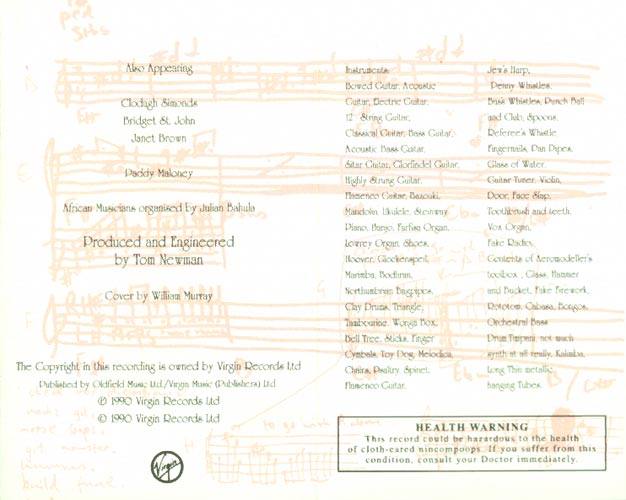 Also Appearing
Clodagh Simonds
Bridget St. John
Janet Brown
Paddy Maloney
African Musicians organised by Julian Bahula
Produced and Engineered
by Tom Newman
Cover by William Murray
The Copyright in this recording is owned by Virgin Records Ltd
Published by Oldfield Music Ltd./Virgin Music (Publishers) Ltd
© 1990 Virgin Records Ltd
℗ 1990 Virgin Records Ltd
Virgin
Instruments:
Bowed Guitar, Acoustic
Guitar, Electric Guitar,
12 String Guitar,
Classical Guitar, Bass Guitar,
Acoustic Bass Guitar,
Sitar Guitar, Glorfindel Guitar,
Highly Strung Guitar,
Flamenco Guitar, Bazouki,
Mandolin, Ukulele, Steinway
Piano, Banjo, Farfisa Organ,
Lowrey Organ, Shoes,
Hoover, Glockenspeil,
Marimba, Bodhran,
Northumbrian Bagpipes,
Clay Drums, Triangle,
Tambourine, Wonga Box,
Bell Tree, Sticks, Finger
Cymbals, Toy Dog, Melodica,
Chairs, Psaltry, Spinet,
Flamenco Guitar,
Jew's Harp,
Penny Whistles,
Bass Whistles, Punch Ball
and Club, Spoons,
Referee's Whistle
Fingernails, Pan Pipes,
Glass of Water,
Guitar Tuner, Violin,
Door, Face Slap,
Toothbrush and teeth,
Vox Organ,
Fake Radio,
Contents of Aeromodeller's
toolbox , Glass, Hammer
and Bucket, Fake Firework,
Rototom, Cabasa, Bongos,
Orchestral Bass
Drum Timpani, not much
synth at all really, Kalimba,
Long Thin metallic
hanging Tubes.
HEALTH WARNING
This record could be hazardous to the health
of cloth-eared nincompoops. If you suffer from this
condition, consult your Doctor immediately.